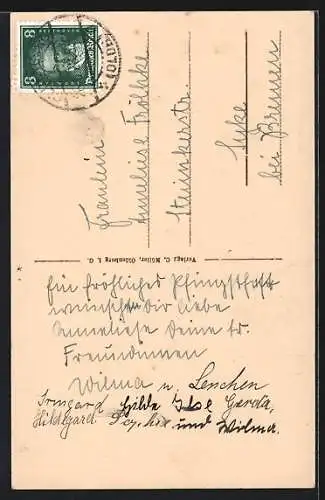 8 BEETHOVEN 8
Deutsches Reich
(OLDB)
Fräulein
Anneliese Fröhlcke
Steimkerstr.
Syke
bei Bremen
Verlag: C. Müller, Oldenburg i. O.
Ein fröhliches Pfingstfest
wünscht dir liebe
Anneliese Deine tr.
Freundinnen
Wilma u. Lenchen
Irmgard Hilde Ilse Gerda,
Hildegard Sophie und Wilma.